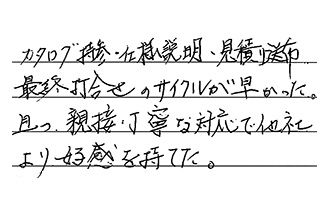 カタログ持参・仕様説明・見積り送布
最終打合せのサイクルが早かった。
且つ、親接・丁寧な対応で他社
より好感を持てた。